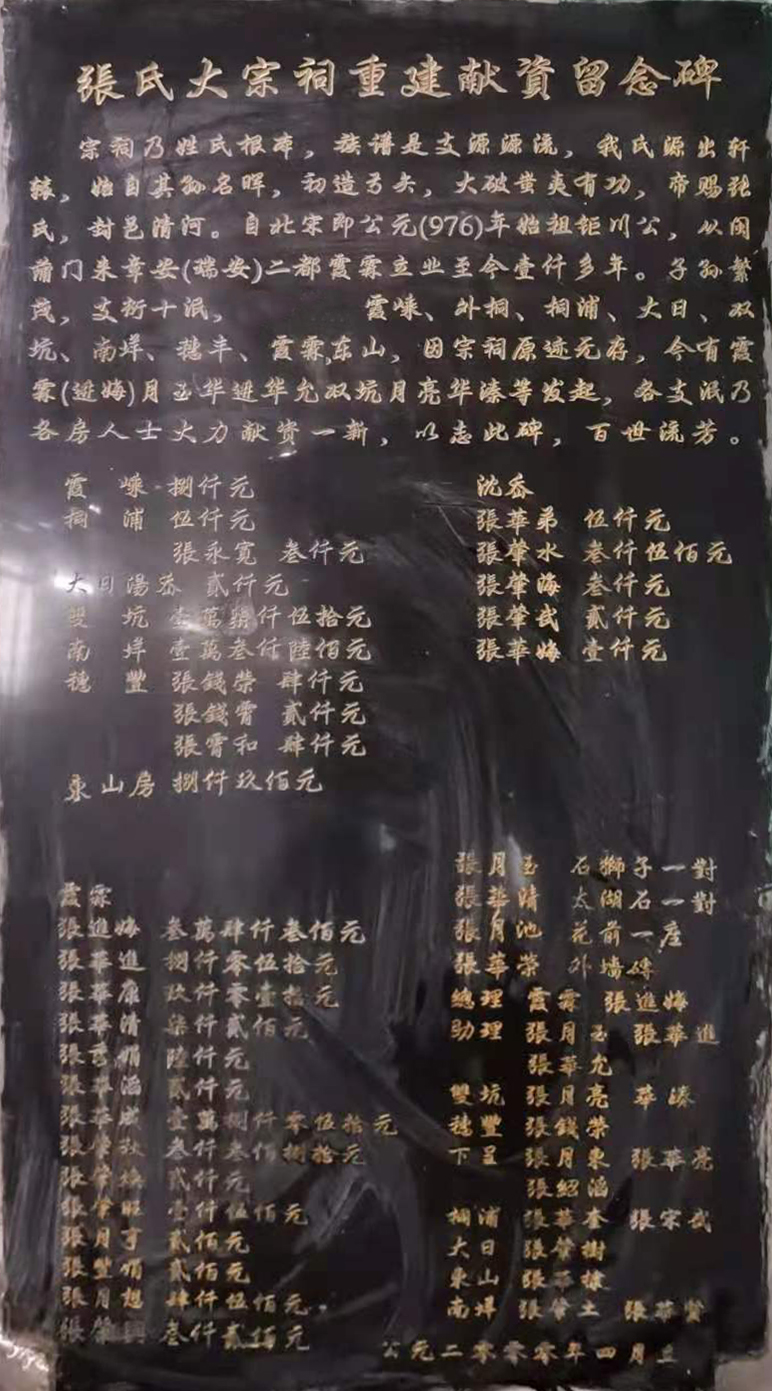 張氏大宗祠重建献資留念碑
宗祠乃姓氏根本，族谱是支源源流，我氏源出轩
辕，始自其孙名晖，初造弓矢，大破蚩夷有功，帝赐张
氏，封邑清河。自北宋即公元(976)年始祖钜川公，从闽
莆门来章安(瑞安)二都霞霖立业至今壹仟多年。子孙繁
茂，支衍十泯，霞嵊、外桐、桐浦、大日、双
坑、南垟、穗丰、霞霖,东山，因宗祠原迹无存，今有霞
霖(进姆)月玉华进华允双坑月亮华溱等发起，各支泯乃
各房人士大力献资一新，以志此碑，百世流芳。
霞嵊 捌仟元
桐浦 伍仟元
張永寬 叁仟元
大日湯岙 贰仟元
雙坑 壹萬柒仟伍拾元
南垟 壹萬叁仟陸佰元
穗豐 張錢榮 肆仟元
張錢霄 貳仟元
張霄和 肆仟元
東山房 捌仟玖佰元
沈岙
張華弟 伍仟元
張肇水 叁仟伍佰元
張肇海 叁仟元
張肇武 貳仟元
張華姆 壹仟元
霞霖
張進姆 叁萬肆仟叁佰元
張華進 捌仟零伍拾元
張華康 玖仟零壹拾元
張華清 柒仟貳佰元
張 娟 陸仟元
張華滔 貳仟元
張華 壹萬捌仟零伍拾元
張肇 叁仟叁佰捌拾元
張肇 貳仟元
張肇 壹仟伍佰元
張月亨 貳佰元
張豐娟 貳佰元
張月想 肆仟伍佰元
張肇興 叁仟貳佰元
張月玉 石獅子一對
張華清 太湖石一對
張月池 花前一座
張華榮 外墻磚
總理 霞霖 張進姆
助理 張月玉 張華進
張華允
雙坑 張月亮 華溱
穗豐 張錢榮
下呈 張月東 張華亮
張紹滔
桐浦 張華奎 張宋武
大日 張肇樹
東山 張華棣
南垟 張肇土 張華賢
公元二零零零年四月立